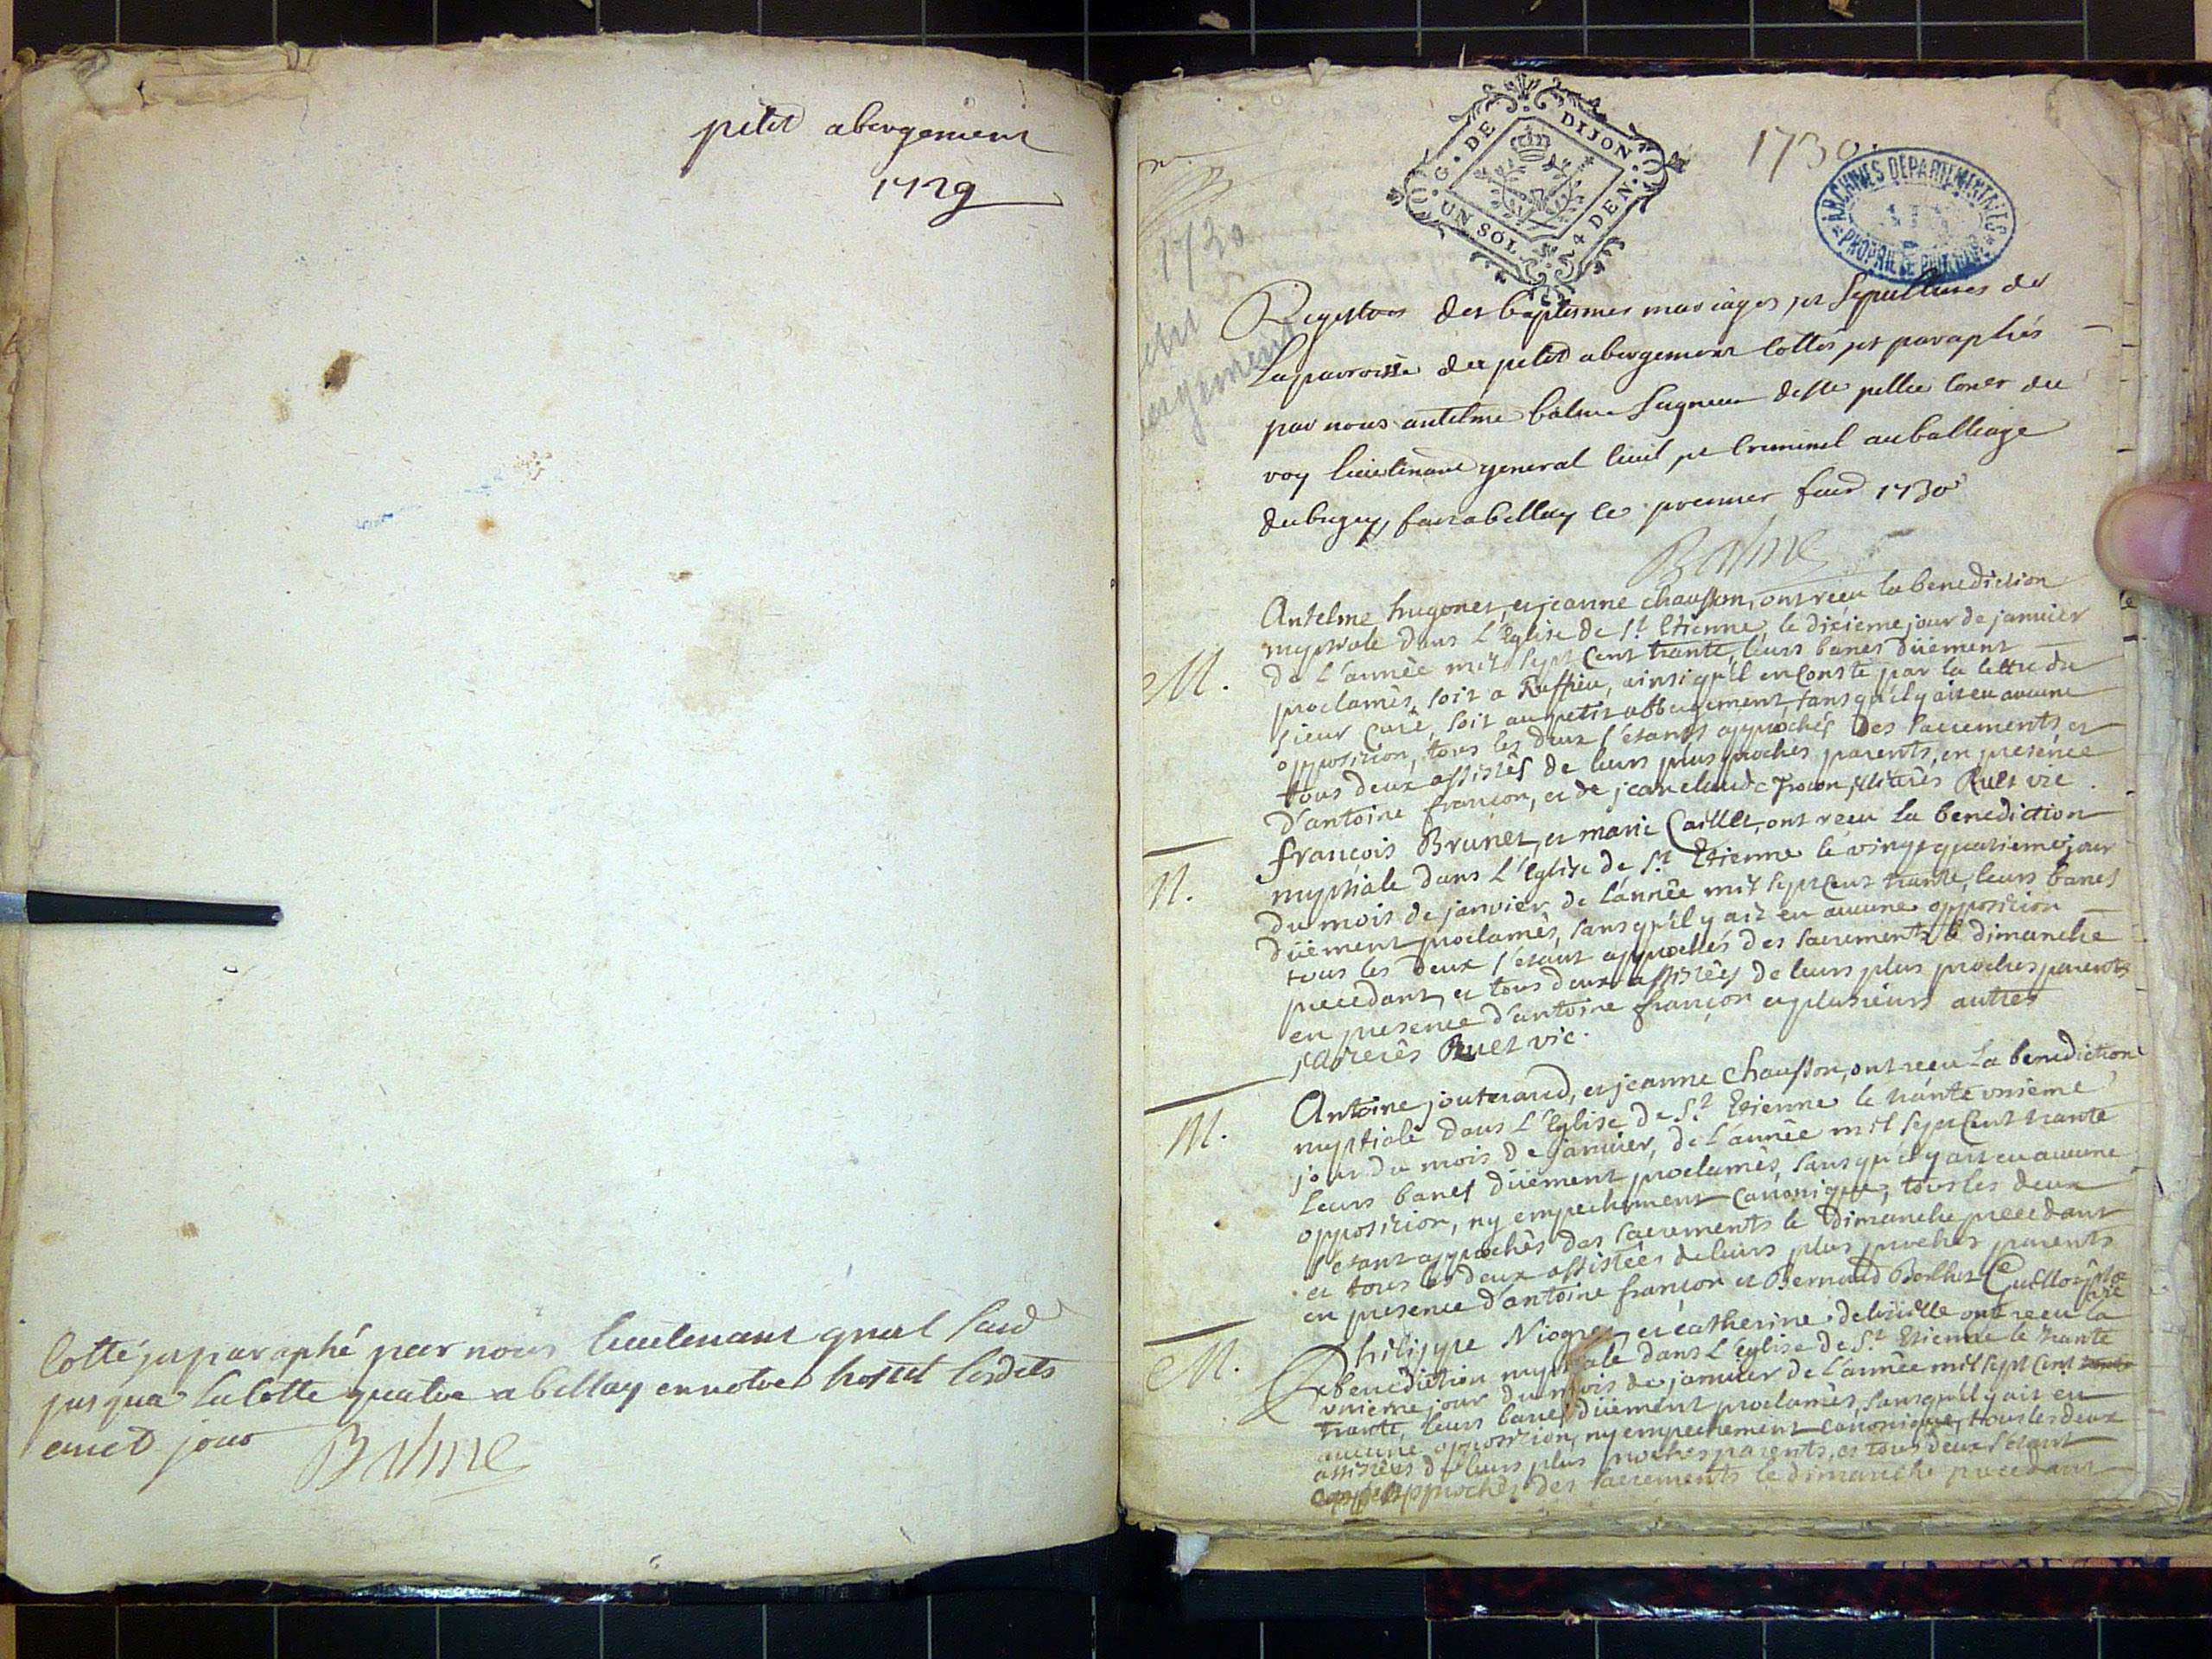 petit abergement
1729
Cotté et paraphé par nous lieutenant gnral susd
jusqua la cotte quatre a bellay en notre hostel lesdits
an et jour
Balme
G. DE DIJON
UN SOL 4 DEN.
1730.
ARCHIVES DEPARTEMENTALES
PROPRIETE PUBLIQUE
1730
Registres des baptesmes mariages et sepultures de
la parroisse du petit abergement cottés et paraphés
par nous antelme balme seigneur de ste pellie coner du
roy lieutenant general civil et criminel au balliage
du bugey, fait a bellay le premier 1730
Balme
M.
Antelme hugonet, et jeanne chausson, ont reçu la benediction
nuptiale dans L'Eglise de St Etienne, le dixieme jour de janvier
de L'année mil sept Cent trante, leurs bancs düement
proclamés, soit a Ruffieu, ainsi qu'il en Conste par la lettre du
sieur Curé, soit au petit abbergement, sans qu'il y ait eu aucune
opposition, tous les deux s'etants approchés des sacrements, et
tous deux assistés de leurs plus proches parents, en presence
d'antoine françon, et de jean claude illiterés Ruet vic.
M.
françois Brunet, et marie Caillet, ont reçu la benediction
nuptiale dans L'Eglise de St Etienne le vingt quatrieme jour
du mois de janvier de L'année mil sept Cent trante, leurs bancs
düement proclamés, sans qu'il y ait eu aucune opposition
tous les deux s'etant approchés des sacrements le dimanche
precedant, et tous deux assistés de leurs plus proches parents
en presence d'antoine françon et plusieurs autres
illiterés Ruet vic.
M.
Antoine jouteraud, et jeanne chausson, ont reçu La benediction
nuptiale dans L'Eglise de St Etienne le trante unieme
jour du mois de janvier, de L'année mil sept Cent trante
Leurs bancs düement proclamés, sans qu'il y ait eu aucune
opposition, ny empechement Canonique, tous les deux
s'etant approchés des sacrements le dimanche precedant
et tous les deux assistées de leurs plus proches parents
en presence d'antoine françon et Bernard Berlhet
M.
Philippe Niogret et catherine ont reçu la
benediction nuptiale dans L'Eglise de St Etienne le trante
unieme jour du mois de janvier de L'année mil sept Cent trante
trante, leurs bancs düement proclamés, sans qu'il y ait eu
aucune opposition, ny empechement canonique, tous les deux
assistées de leurs plus proches parents, et tous deux s'etant
approchés des sacrements le dimanche precedant